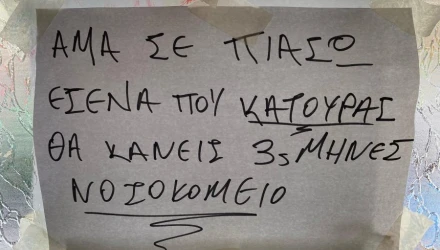 ΑΜΑ ΣΕ ΠΙΑΣΩ
ΕΣΕΝΑ ΠΟΥ ΚΑΤΟΥΡΑΣ
ΘΑ ΚΑΝΕΙΣ 3s ΜΗΝΕΣ
ΝΟΣΟΚΟΜΕΙΟ